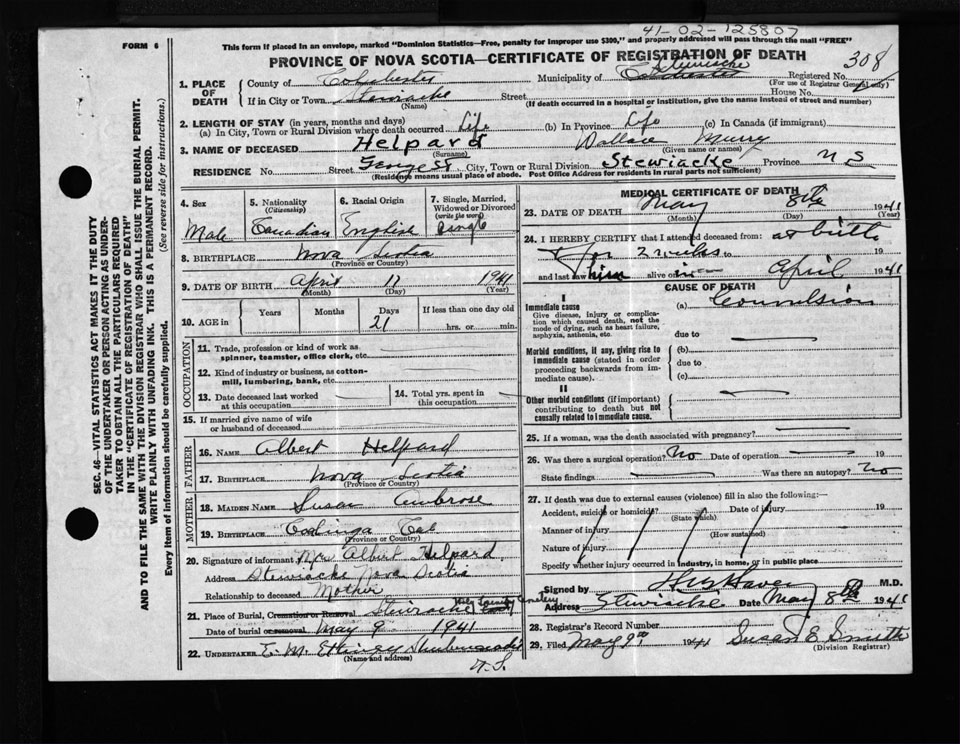 41-02-125807
FORM 6
This form if placed in an envelope, marked "Dominion Statistics—Free, penalty for improper use $300," and properly addressed will pass through the mail "FREE"
PROVINCE OF NOVA SCOTIA—CERTIFICATE OF REGISTRATION OF DEATH
308
1. PLACE OF DEATH
County of Colchester Municipality of Stewiacke Registered No.
(For use of Registrar General only)
If in City or Town Stewiacke Street House No.
(Name) (If death occurred in a hospital or institution, give the name instead of street and number)
2. LENGTH OF STAY (in years, months and days)
(a) In City, Town or Rural Division where death occurred Life (b) In Province Life (c) In Canada (if immigrant)
3. NAME OF DECEASED Helpard Wallace Murry
(Surname) (Given name or names)
RESIDENCE No. Street George St. City, Town or Rural Division Stewiacke Province N S
(Residence means usual place of abode. Post Office Address for residents in rural parts not sufficient)
4. Sex
Male
5. Nationality
(Citizenship)
Canadian
6. Racial Origin
English
7. Single, Married, Widowed or Divorced
(write the word)
Single
8. BIRTHPLACE Nova Scotia
(Province or Country)
9. DATE OF BIRTH April 17 1941
(Month) (Day) (Year)
10. AGE in
Years Months Days If less than one day old
21 hrs. or min.
OCCUPATION
11. Trade, profession or kind of work as spinner, teamster, office clerk, etc.
12. Kind of industry or business, as cotton-mill, lumbering, bank, etc.
13. Date deceased last worked at this occupation
14. Total yrs. spent in this occupation
15. If married give name of wife or husband of deceased
FATHER
16. NAME Albert Helpard
17. BIRTHPLACE Nova Scotia
(Province or Country)
MOTHER
18. MAIDEN NAME Susan Ambrose
19. BIRTHPLACE
(Province or Country)
20. Signature of informant Mrs Albert Helpard
Address Stewiacke Nova Scotia
Relationship to deceased Mother
21. Place of Burial, Cremation or Removal Stewiacke Cemetery
Date of burial or removal May 9 1941
22. UNDERTAKER E. M. Shubenacadie
(Name and address)
N.S.
MEDICAL CERTIFICATE OF DEATH
23. DATE OF DEATH May 8th 1941
(Month) (Day) (Year)
24. I HEREBY CERTIFY that I attended deceased from: at birth
for 2 weeks to 19
and last saw him alive on April 1941
CAUSE OF DEATH
I
Immediate cause
Give disease, injury or complication which caused death, not the mode of dying, such as heart failure, asphyxia, asthenia, etc.
(a) Convulsion
due to
Morbid conditions, if any, giving rise to immediate cause (stated in order proceeding backwards from immediate cause).
(b)
due to
(c)
II
Other morbid conditions (if important) contributing to death but not causally related to immediate cause.
25. If a woman, was the death associated with pregnancy?
26. Was there a surgical operation? No Date of operation 19
State findings Was there an autopsy? No
27. If death was due to external causes (violence) fill in also the following:—
Accident, suicide or homicide? Date of injury 19
(State which)
Manner of injury
(How sustained)
Nature of injury
Specify whether injury occurred in industry, in home, or in public place
Signed by M.D.
Address Stewiacke Date May 8th 1941
28. Registrar's Record Number
29. Filed May 9th 1941 Susan E. Smith
(Division Registrar)
SEC. 46—VITAL STATISTICS ACT MAKES IT THE DUTY
OF THE UNDERTAKER OR PERSON ACTING AS UNDER-
TAKER TO OBTAIN ALL THE PARTICULARS REQUIRED
IN THE "CERTIFICATE OF REGISTRATION OF DEATH"
AND TO FILE THE SAME WITH THE DIVISION REGISTRAR WHO SHALL ISSUE THE BURIAL PERMIT.
WRITE PLAINLY WITH UNFADING INK. THIS IS A PERMANENT RECORD.
(See reverse side for instructions.)
Every item of information should be carefully supplied.